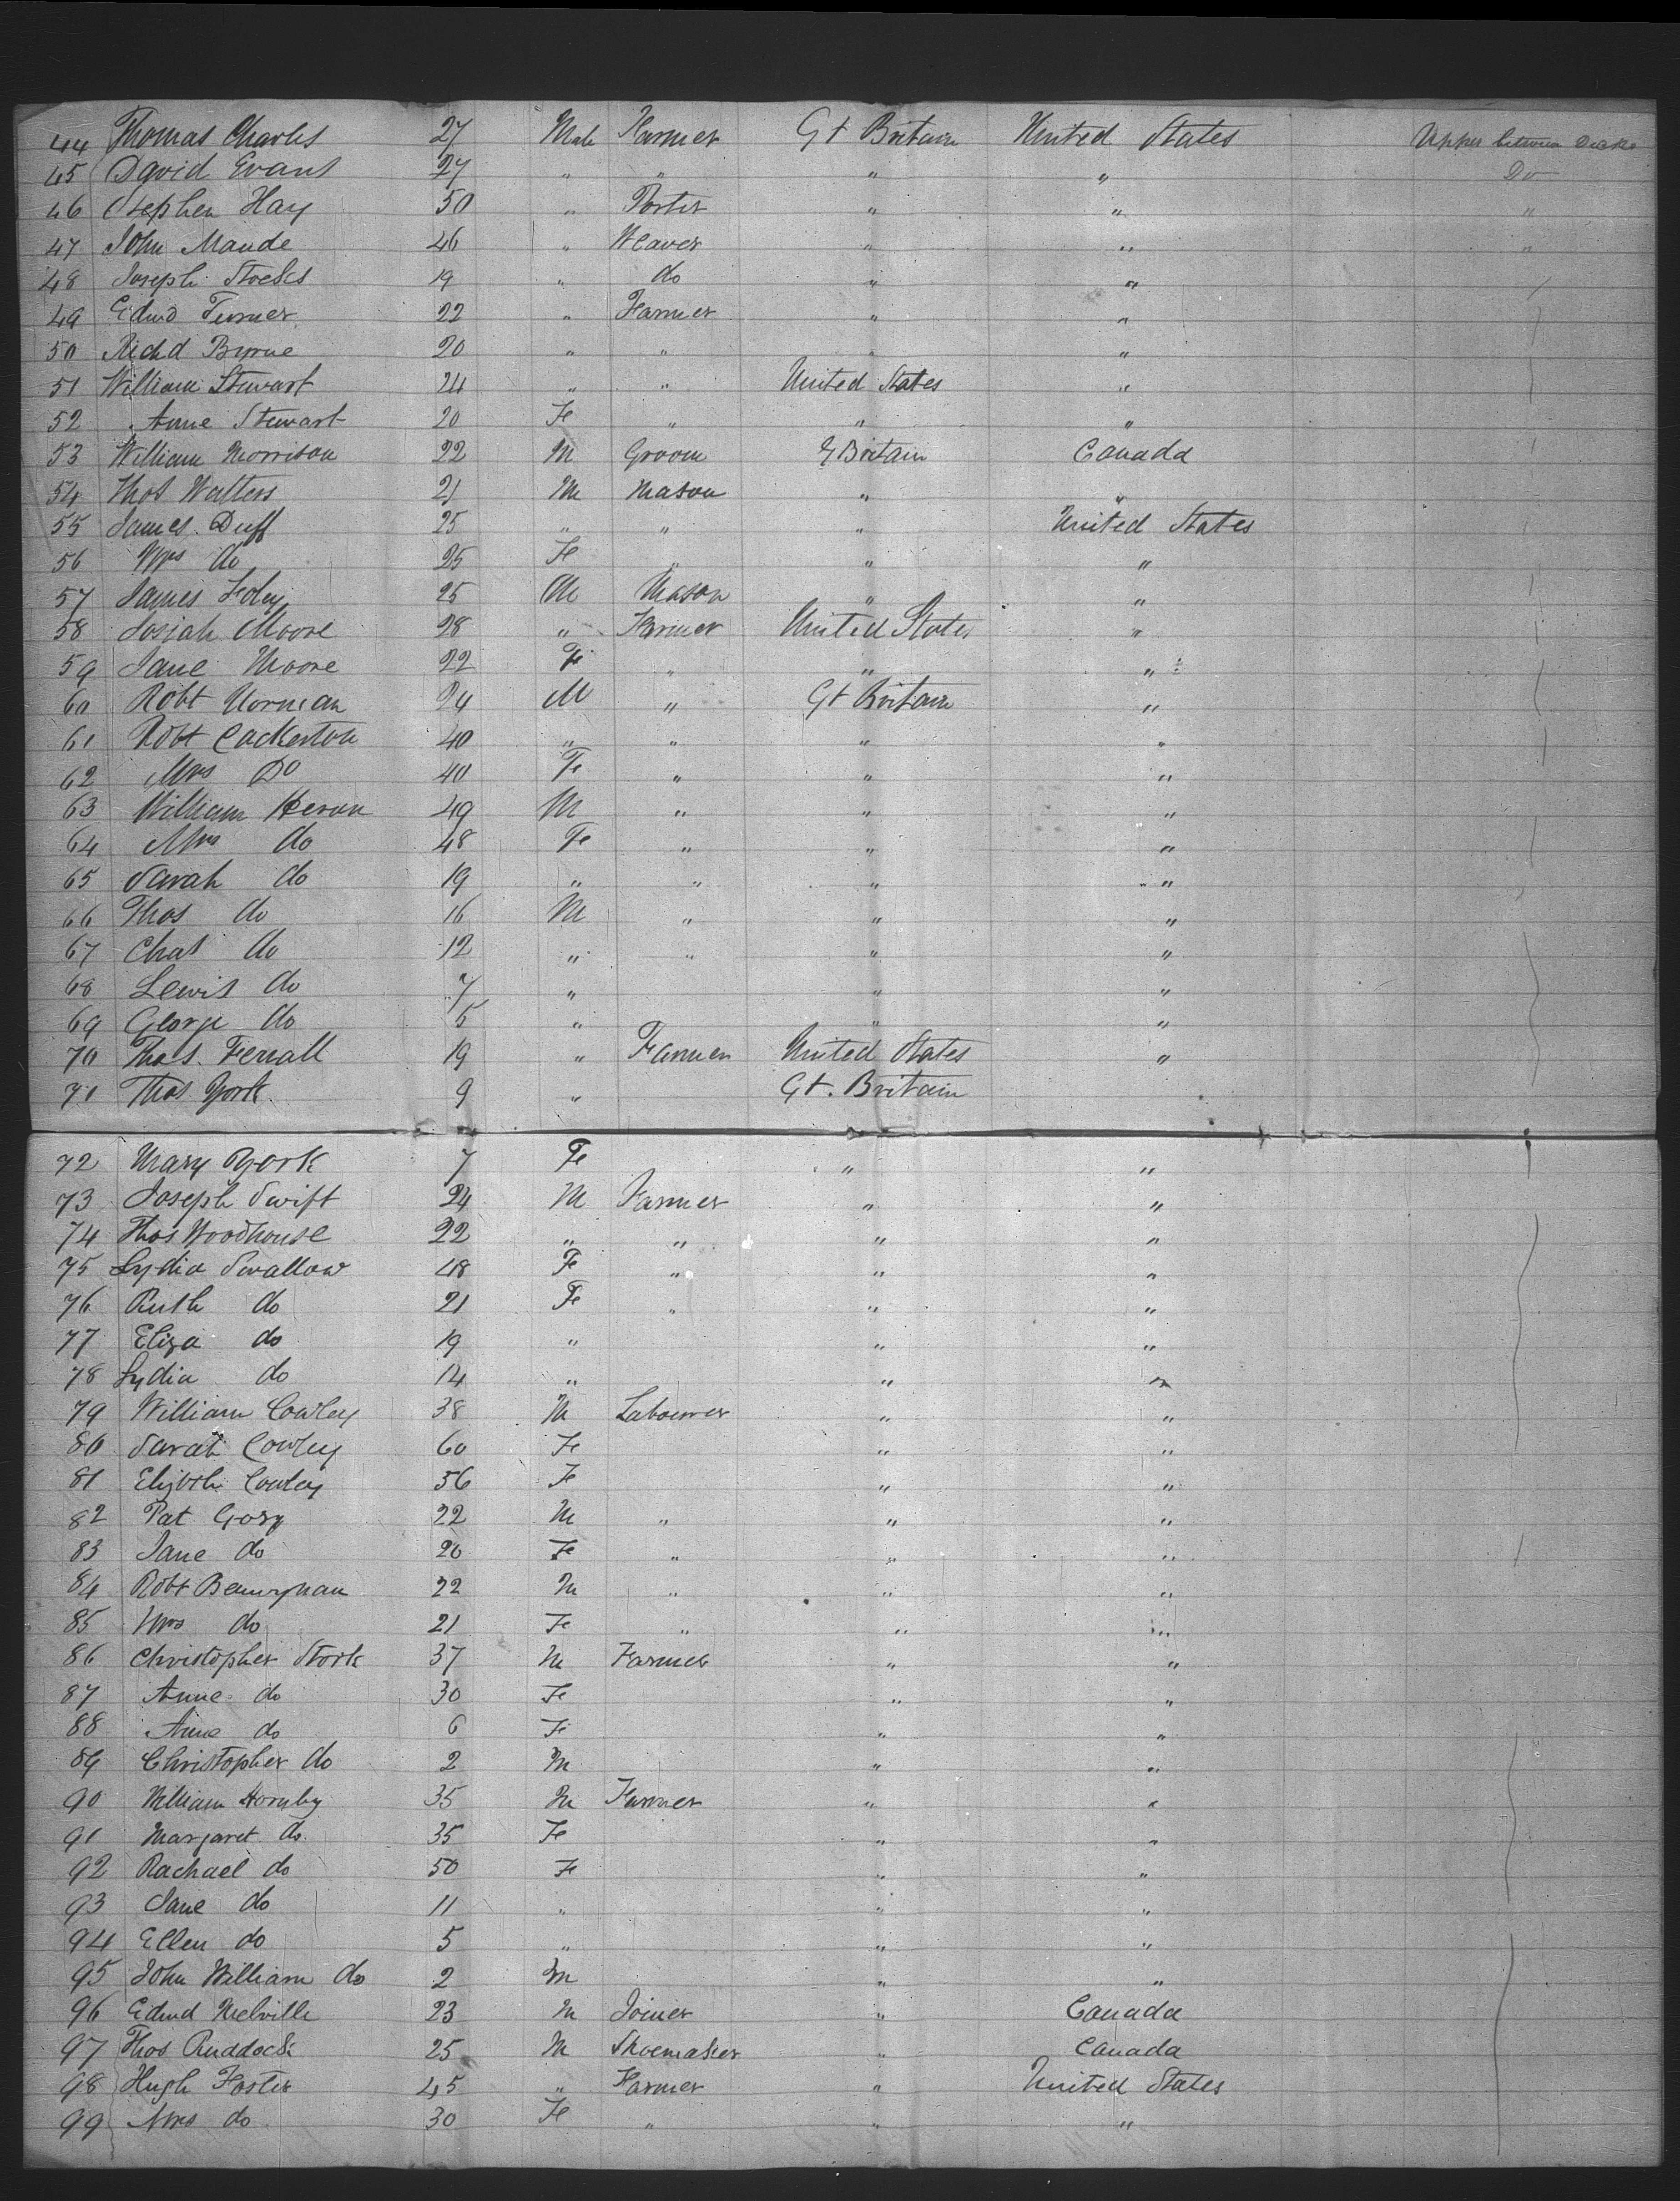 44 Thomas Charles 27 Male Farmer Gt Britain United States Upper between Decks
45 David Evans 27 " " " " Do
46 Stephen Hay 50 " Porter " " "
47 John Maude 46 " Weaver " " "
48 Joseph Stocks 19 " do " "
49 Edwd Turner 22 " Farmer " "
50 Richd Byrne 20 " " " "
51 William Stewart 24 " " United States "
52 Anne Stewart 20 Fe " " "
53 William Morrison 22 M Groom G Britain Canada
54 Thos Walters 21 M Mason " "
55 James Duff 25 " " " United States
56 Mrs do 25 Fe " " "
57 James Foley 25 M Mason " "
58 Josiah Moore 28 " Farmer United States "
59 Jane Moore 22 Fe " " "
60 Robt Norman 24 M " Gt Britain "
61 Robt Cackerton 40 " " " "
62 Mrs Do 40 Fe " " "
63 William Heron 49 M " " "
64 Mrs do 48 Fe " " "
65 Sarah do 19 " " " "
66 Thos do 16 M " " "
67 Chas do 12 " " " "
68 Lewis do 7 " " "
69 George do 5 " " "
70 Thos. Ferrall 19 " Farmer United States "
71 Thos York 9 " Gt. Britain
72 Mary York 7 Fe " "
73 Joseph Swift 24 M Farmer " "
74 Thos Woodhouse 22 " " " "
75 Lydia Swallow 48 Fe " " "
76 Ruth do 21 Fe " " "
77 Eliza do 19 " " "
78 Lydia do 14 " " "
79 William Cowley 38 M Labourer " "
80 Sarah Cowley 60 Fe " "
81 Elizbth Cowley 56 Fe " "
82 Pat Gory 22 M " " "
83 Jane do 20 Fe " " "
84 Robt 22 M " " "
85 Mrs do 21 Fe " " "
86 Christopher Stork 37 M Farmer " "
87 Anne do 30 Fe " "
88 Anne do 6 Fe " "
89 Christopher do 2 M " "
90 William Hornby 35 M Farmer " "
91 Margaret do 35 Fe " "
92 Rachael do 50 Fe " "
93 Jane do 11 " " "
94 Ellen do 5 " " "
95 John William do 2 M " "
96 Edwd Melville 23 M Joiner " Canada
97 Thos Ruddock 25 M Shoemaker " Canada
98 Hugh Foster 45 " Farmer " United States
99 Mrs do 30 Fe " " "